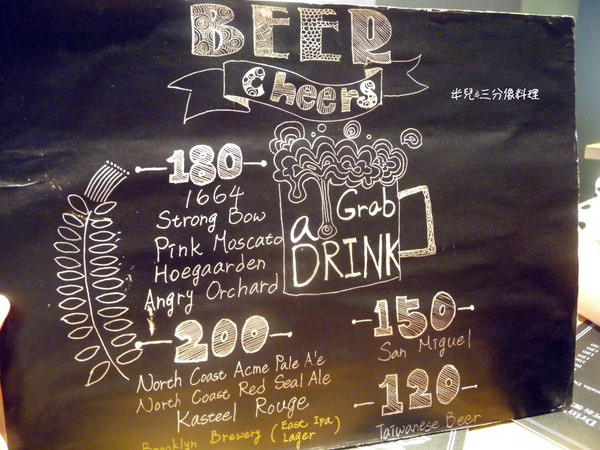 BEER
Cheers
180
1664
Strong Bow
Pink Moscato
Hoegaarden
Angry Orchard
Grab
a
DRINK
200
North Coast Acme Pale A'e
North Coast Red Seal Ale
Kasteel Rouge
Brooklyn Brewery (East Ipa)
Lager
150
San Miguel
120
Taiwanese Beer
半兒&三分像料理
Drin